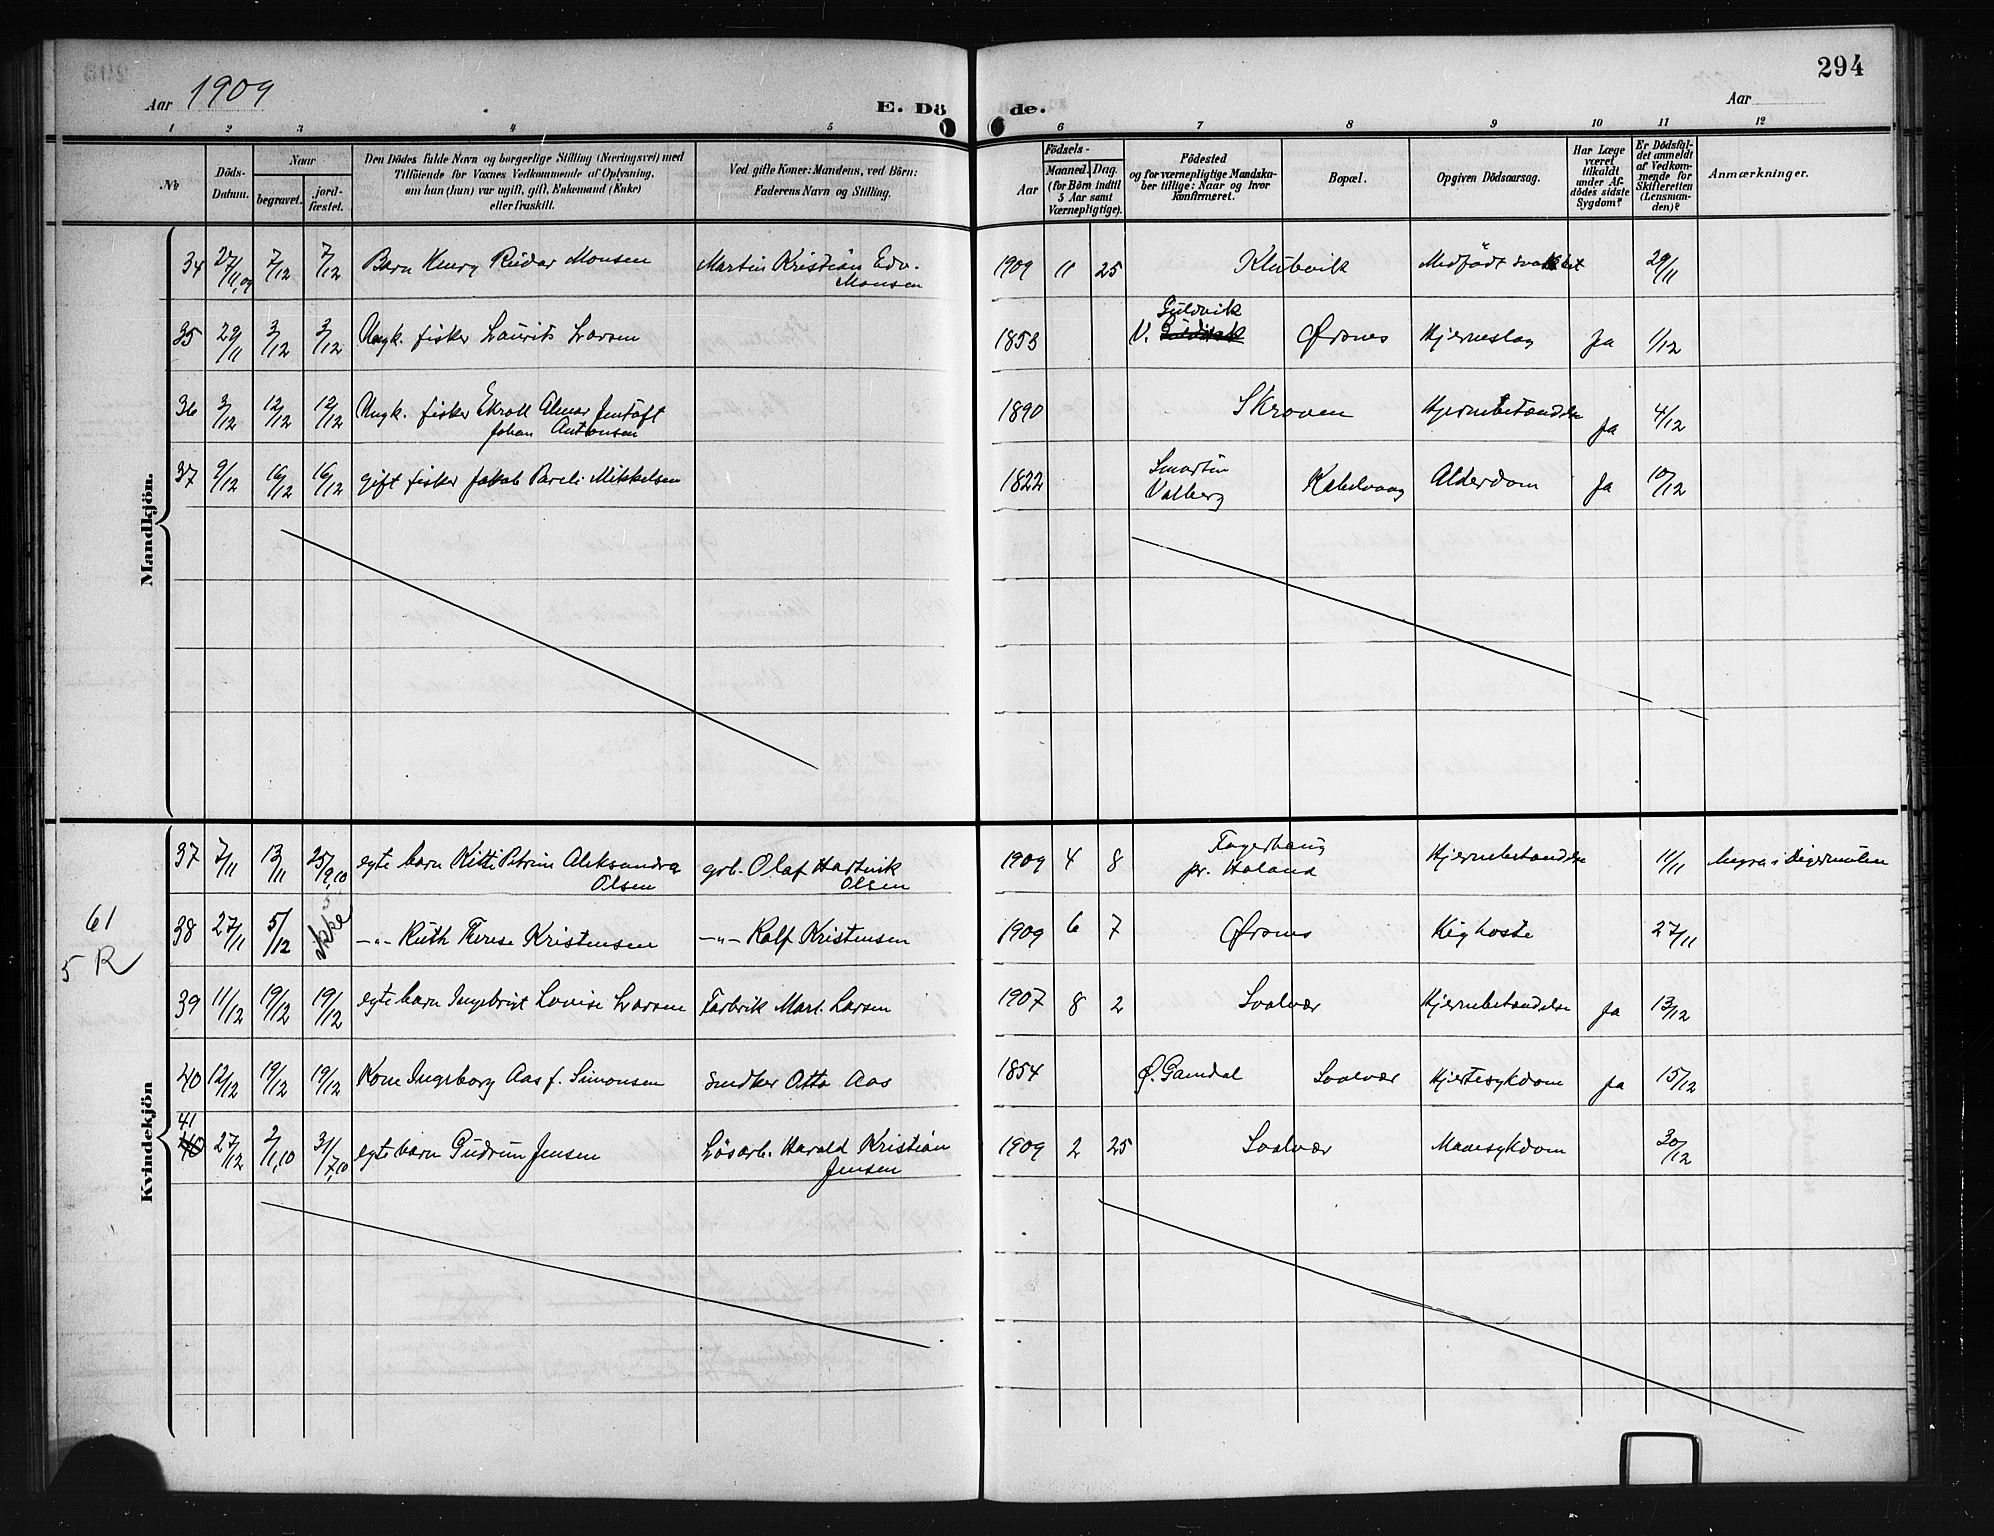 294
Aar 1909
E. Dö de.
Aar
1 2 3 4 5 6 7 8 9 10 11 12
No
Döds-Datum.
Naar
begravet.
jord-fæstet.
Den Dödes fulde Navn og borgerlige Stilling (Næringsvei) med
Tilföiende for Voxnes Vedkommende af Oplysning,
om han (hun) var ugift, gift, Enkemand (Enke)
eller fraskilt.
Ved gifte Koner: Mandens, ved Börn:
Faderens Navn og Stilling.
Födsels-
Aar
Maaned. Dag.
(for Börn indtil
5 Aar samt
Værnepligtige).
Födested
og for værnepligtige Mandska-
ber tillige: Naar og hvor
konfirmeret.
Bopæl.
Opgiven Dödsaarsag.
Har Læge
været
tilkaldt
under Af-
dödes sidste
Sygdom?
Er Dödsfal-
det anmeldt
af Vedkom-
mende for
Skifteretten
(Lensman-
den)?
Anmærkninger.
Mandkjön.
34 27/11,09 7/12 7/12 Barn Henry Reidar Monsen Martin Kristian Edv. Monsen 1909 11 25 Klubvik Medfödt svakhet 29/11
35 29/11 3/12 3/12 Ungk. fisker Laurits Larsen 1853 V. Guldvik Ørsnes Hjerneslag Ja 1/12
36 3/12 12/12 12/12 Ungk. fisker Ekroll Almar Jentoft Johan Antonsen 1890 Skroven Hjernebetændelse Ja 4/12
37 9/12 16/12 16/12 gift fisker Jakob Pareli Mikkelsen 1822 Smorten Valberg Kabelvaag Alderdom Ja 10/12
Kvindekjön
37 7/11 13/11 25/9,10 egte barn Kitti Petrine Aleksandra Olsen grb. Olaf Hartvik Olsen 1909 4 8 Fagerhaug pr. Holand Hjernebetændelse 11/11 begra i Digermulen
61
5 R
38 27/11 5/12 ikke -"- Ruth Therese Kristensen -"- Rolf Kristensen 1909 6 7 Ørsnes Kighoste 27/11
39 11/12 19/12 19/12 egte barn Ingebrigt Lovise Larsen Fabrik Mart. Larsen 1907 8 2 Svolvær Hjernebetændelse Ja 13/12
40 12/12 19/12 19/12 Kone Ingeborg Aas f. Simonsen Snedker Otto Aas 1854 Ø. Gamdal Svolvær Hjertesykdom Ja 15/12
41 27/12 2/1,10 31/7,10 egte barn Gudrun Jensen Lösarb. Harald Kristian Jensen 1909 2 25 Svolvær Mavesykdom 30/12